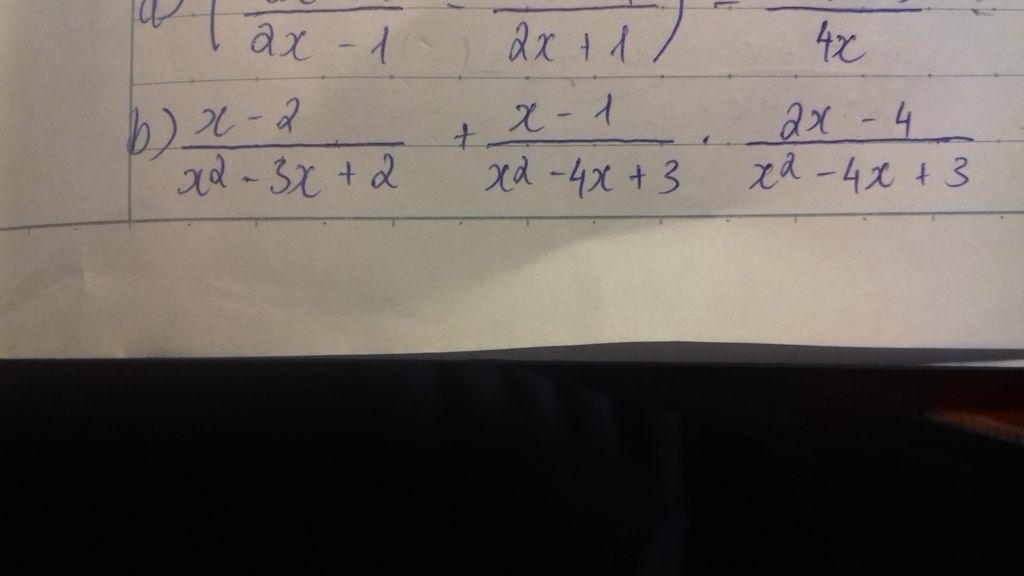 a) ( / 2x - 1 - / 2x + 1 ) = / 4x
b) x - 2 / x² - 3x + 2 + x - 1 / x² - 4x + 3 · 2x - 4 / x² - 4x + 3